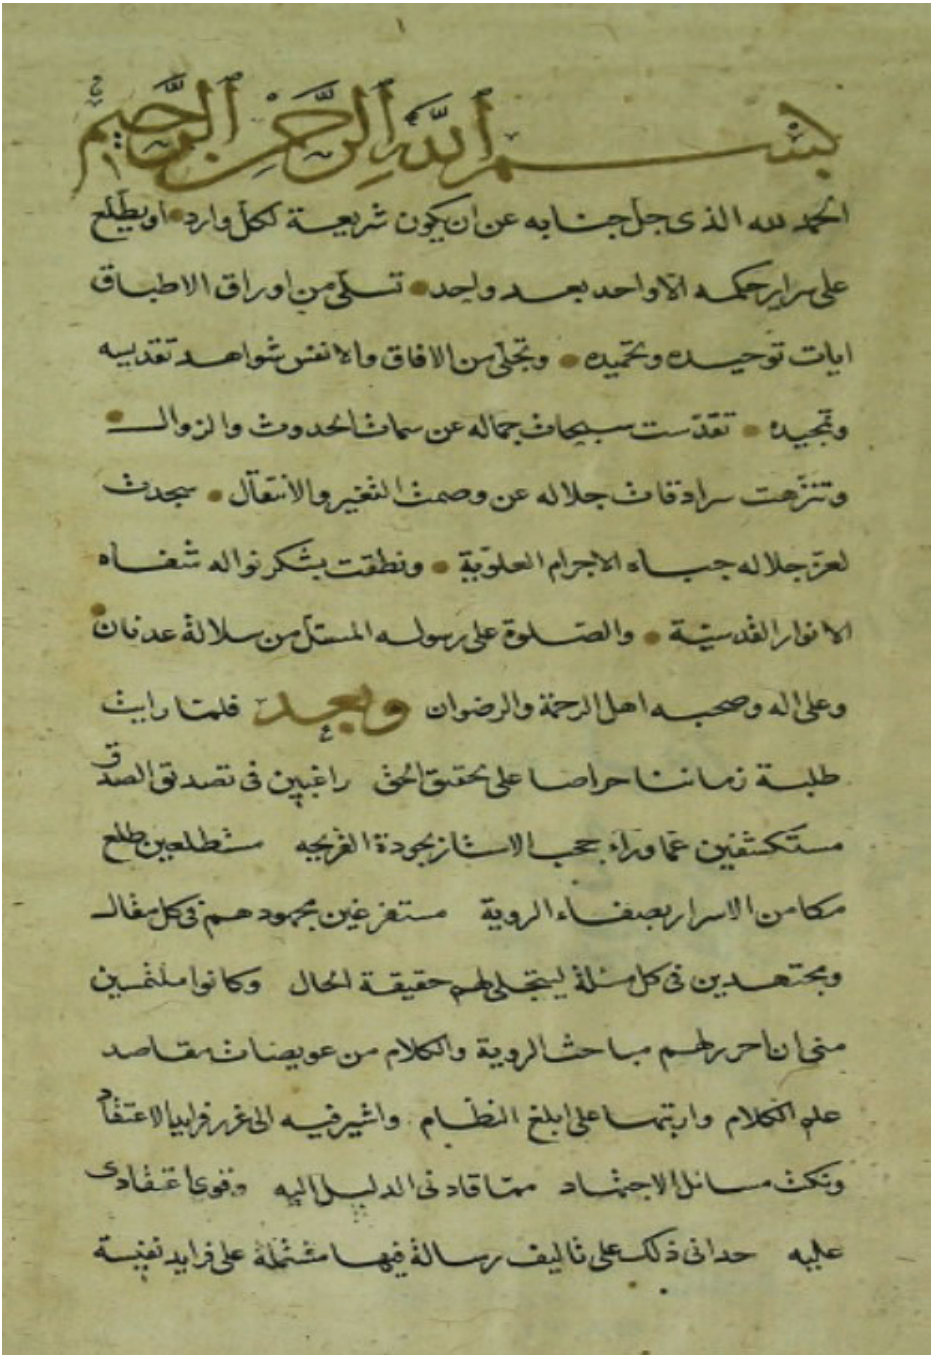 ١
بسم الله الرحمن الرحيم
الحمد لله الذى جل جنابه عن ان يكون شريعة لكل وارد او يطلع
على سراير حكمه الا واحد بعد واحد تتلى من اوراق الاطباق
ايات توحيده وتحميده وتجلى من الافاق والانفس شواهد تقديسه
وتمجيده تقدّست سبحات جماله عن سمات الحدوث والزوال
وتنزّهت سرادقات جلاله عن وصمت التغير والانتقال سجدت
لعزّ جلاله جباه الاجرام العلويّة ونطقت بشكر نواله شفاه
الانوار القدسيّة والصّلوة على رسوله المستلّ من سلالة عدنان
وعلى اله وصحبه اهل الرحمة والرضوان وبعد فلما رايت
طلبة زماننا حراصا على تحقيق الحق راغبين فى تصديق الصدق
مستكشفين عمّا وراء حجب الاستار بجودة القريحه متطلعين طلع
مكامن الاسرار بصفاء الروية مستفرغين مجهودهم فى كل مقال
ومجتهدين فى كل مسئلة ليتجلى لهم حقيقة الحال وكانوا ملتمسين
منى ان احرر لهم مباحث الروية والكلام من عويصات مقاصد
علم الكلام وارتبها على ابلغ النظام واشير فيه الى غرر فرايد الاعتقاد
ونكت مسائل الاجتهاد ممّا قادنى الدليل اليه وقوى اعتقادى
عليه حدانى ذلك على تاليف رسالة فيها مشتملة على فرايد نفيسة